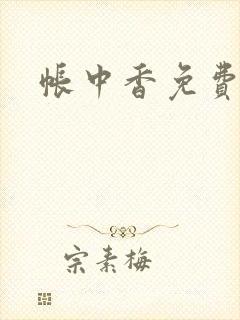 帐中香免費
宗素梅